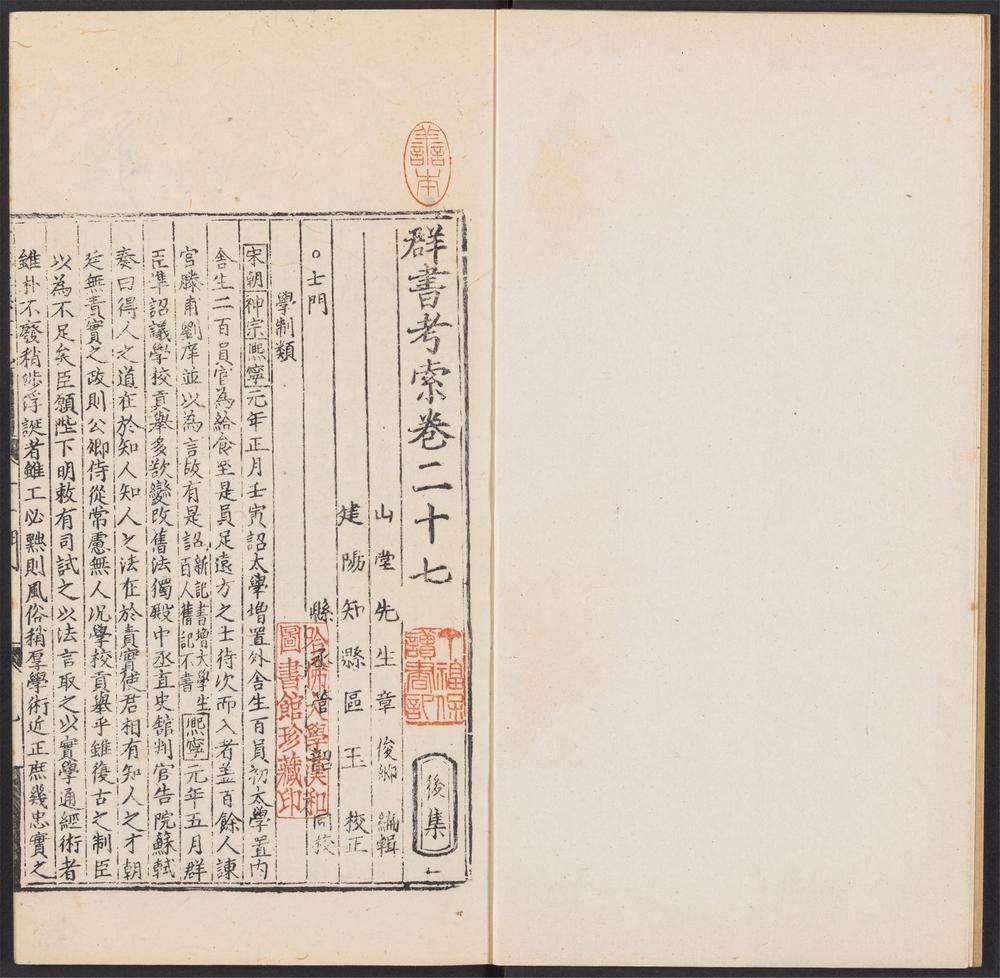 善本
群書考索卷二十七
丁福保讀書記
後集
一
山堂先生章俊卿編輯
建陽知縣區玉校正
縣丞管韶同校
哈佛大學漢和圖書館珍藏印
○士門
學制類
宋朝神宗熙寧元年正月壬寅詔太學增置外舍生百員初太學置内
舍生二百員官為給食至是員足遠方之士待次而入者盖百餘人諫
官滕甫劉庠並以為言故有是詔新記書增太學生百人舊記不書熙寧元年五月群
臣準詔議學校貢舉多欲變改舊法獨殿中丞直史館判官告院蘇軾
奏曰得人之道在於知人知人之法在於責實使君相有知人之才朝
廷無責實之政則公卿侍從常慮無人况學校貢舉乎雖復古之制臣
以為不足矣臣願陛下明敕有司試之以法言取之以實學通經術者
雖朴不廢稍涉浮誕者雖工必黜則風俗稍厚學術近正庶幾忠實之